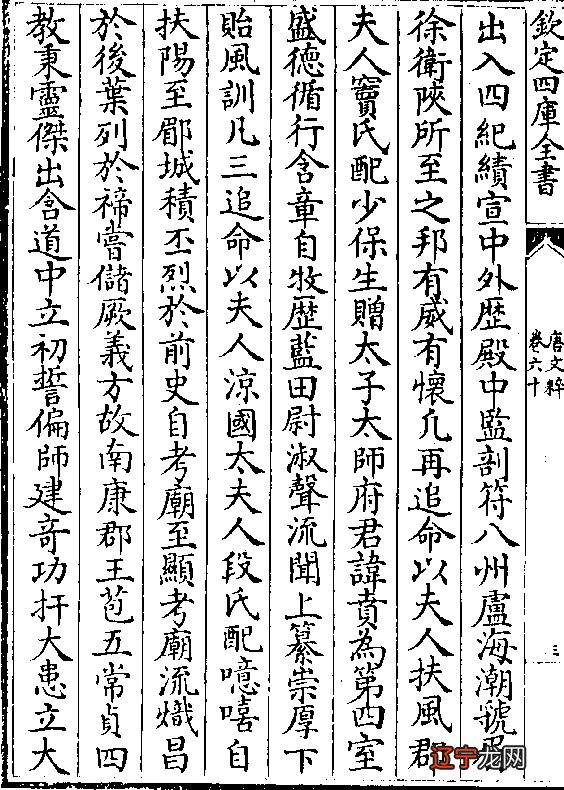 欽定四庫全書
唐文粹
卷六十
三
出入四紀績宣中外歴殿中監剖符八州廬海潮虢眉
徐衛陜所至之邦有威有懷凢再追命以夫人扶風郡
夫人竇氏配少保生贈太子太師府君諱賁為第四室
盛德循行含章自牧歴藍田尉淑聲流聞上纂崇厚下
貽風訓凡三追命以夫人涼國太夫人段氏配噫嘻自
扶陽至郿城積丕烈於前史自考廟至顯考廟流熾昌
於後葉列於禘嘗儲厥義方故南康郡王苞五常貞四
教秉靈傑出含道中立初誓偏師建竒功扞大患立大
辽宁龙网